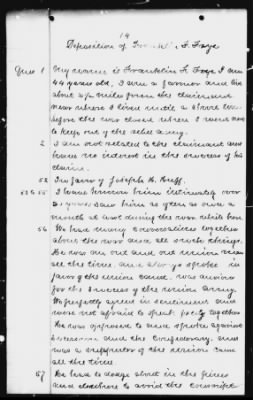 19
Deposition of Franklin F. Frye
Ques 1 My name is Franklin F. Frye I am
44 years old, I am a farmer and live
about 2½ miles from the claimant
near where I lived until a short time
before the war closed when I went north
to keep out of the rebel army.
2 I am not related to the claimant and
have no interest in the success of his
claim.
52 In favor of Joseph H. Huff.
53 & 55 I have known him intimately over
20 years, saw him as often as once a
month at least during the war while here
56 We had many conversations together
about the war and all such things.
He was an out and out union man
all the time, and always spoke in
favor of the union cause, was anxious
for the success of the union army
We perfectly agreed in sentiment and
were not afraid to speak freely together
He was opposed to and spoke against
secession and the Confederacy, and
was a supporter of the union cause
all the time.
57 He had to dodge about in the pines
and elsewhere to avoid the conscript